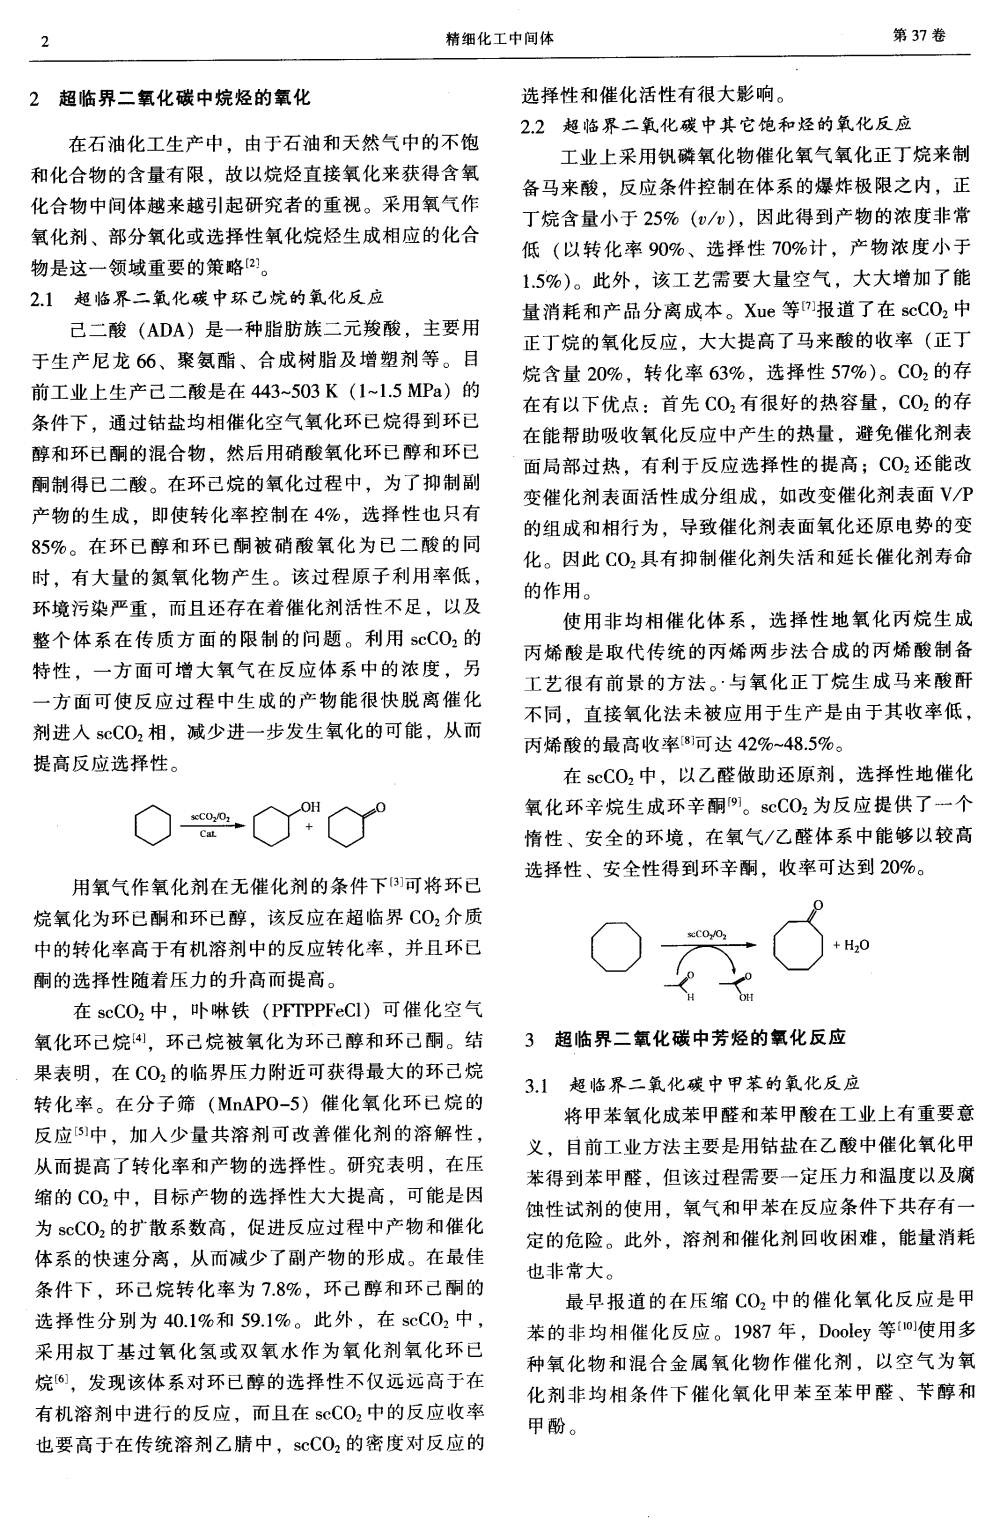 2
精细化工中间体
第 37 卷
2 超临界二氧化碳中烷烃的氧化
在石油化工生产中，由于石油和天然气中的不饱
和化合物的含量有限，故以烷烃直接氧化来获得含氧
化合物中间体越来越引起研究者的重视。采用氧气作
氧化剂、部分氧化或选择性氧化烷烃生成相应的化合
物是这一领域重要的策略[2]。
2.1 超临界二氧化碳中环己烷的氧化反应
己二酸（ADA）是一种脂肪族二元羧酸，主要用
于生产尼龙 66、聚氨酯、合成树脂及增塑剂等。目
前工业上生产己二酸是在 443~503 K（1~1.5 MPa）的
条件下，通过钴盐均相催化空气氧化环已烷得到环已
醇和环已酮的混合物，然后用硝酸氧化环已醇和环已
酮制得已二酸。在环己烷的氧化过程中，为了抑制副
产物的生成，即使转化率控制在 4%，选择性也只有
85%。在环已醇和环已酮被硝酸氧化为已二酸的同
时，有大量的氮氧化物产生。该过程原子利用率低，
环境污染严重，而且还存在着催化剂活性不足，以及
整个体系在传质方面的限制的问题。利用 scCO₂ 的
特性，一方面可增大氧气在反应体系中的浓度，另
一方面可使反应过程中生成的产物能很快脱离催化
剂进入 scCO₂ 相，减少进一步发生氧化的可能，从而
提高反应选择性。
scCO₂/O₂
Cat.
OH
+
O
用氧气作氧化剂在无催化剂的条件下[3]可将环已
烷氧化为环已酮和环已醇，该反应在超临界 CO₂ 介质
中的转化率高于有机溶剂中的反应转化率，并且环已
酮的选择性随着压力的升高而提高。
在 scCO₂ 中，卟啉铁（PFTPPFeCl）可催化空气
氧化环己烷[4]，环己烷被氧化为环己醇和环己酮。结
果表明，在 CO₂ 的临界压力附近可获得最大的环己烷
转化率。在分子筛（MnAPO-5）催化氧化环已烷的
反应[5]中，加入少量共溶剂可改善催化剂的溶解性，
从而提高了转化率和产物的选择性。研究表明，在压
缩的 CO₂ 中，目标产物的选择性大大提高，可能是因
为 scCO₂ 的扩散系数高，促进反应过程中产物和催化
体系的快速分离，从而减少了副产物的形成。在最佳
条件下，环己烷转化率为 7.8%，环己醇和环己酮的
选择性分别为 40.1%和 59.1%。此外，在 scCO₂ 中，
采用叔丁基过氧化氢或双氧水作为氧化剂氧化环已
烷[6]，发现该体系对环已醇的选择性不仅远远高于在
有机溶剂中进行的反应，而且在 scCO₂ 中的反应收率
也要高于在传统溶剂乙腈中，scCO₂ 的密度对反应的
选择性和催化活性有很大影响。
2.2 超临界二氧化碳中其它饱和烃的氧化反应
工业上采用钒磷氧化物催化氧气氧化正丁烷来制
备马来酸，反应条件控制在体系的爆炸极限之内，正
丁烷含量小于 25%（v/v），因此得到产物的浓度非常
低（以转化率 90%、选择性 70%计，产物浓度小于
1.5%）。此外，该工艺需要大量空气，大大增加了能
量消耗和产品分离成本。Xue 等[7]报道了在 scCO₂ 中
正丁烷的氧化反应，大大提高了马来酸的收率（正丁
烷含量 20%，转化率 63%，选择性 57%）。CO₂ 的存
在有以下优点：首先 CO₂ 有很好的热容量，CO₂ 的存
在能帮助吸收氧化反应中产生的热量，避免催化剂表
面局部过热，有利于反应选择性的提高；CO₂ 还能改
变催化剂表面活性成分组成，如改变催化剂表面 V/P
的组成和相行为，导致催化剂表面氧化还原电势的变
化。因此 CO₂ 具有抑制催化剂失活和延长催化剂寿命
的作用。
使用非均相催化体系，选择性地氧化丙烷生成
丙烯酸是取代传统的丙烯两步法合成的丙烯酸制备
工艺很有前景的方法。与氧化正丁烷生成马来酸酐
不同，直接氧化法未被应用于生产是由于其收率低，
丙烯酸的最高收率[8]可达 42%~48.5%。
在 scCO₂ 中，以乙醛做助还原剂，选择性地催化
氧化环辛烷生成环辛酮[9]。scCO₂ 为反应提供了一个
惰性、安全的环境，在氧气/乙醛体系中能够以较高
选择性、安全性得到环辛酮，收率可达到 20%。
scCO₂/O₂
O
+ H₂O
O
H
O
OH
3 超临界二氧化碳中芳烃的氧化反应
3.1 超临界二氧化碳中甲苯的氧化反应
将甲苯氧化成苯甲醛和苯甲酸在工业上有重要意
义，目前工业方法主要是用钴盐在乙酸中催化氧化甲
苯得到苯甲醛，但该过程需要一定压力和温度以及腐
蚀性试剂的使用，氧气和甲苯在反应条件下共存有一
定的危险。此外，溶剂和催化剂回收困难，能量消耗
也非常大。
最早报道的在压缩 CO₂ 中的催化氧化反应是甲
苯的非均相催化反应。1987 年，Dooley 等[10]使用多
种氧化物和混合金属氧化物作催化剂，以空气为氧
化剂非均相条件下催化氧化甲苯至苯甲醛、苄醇和
甲酚。